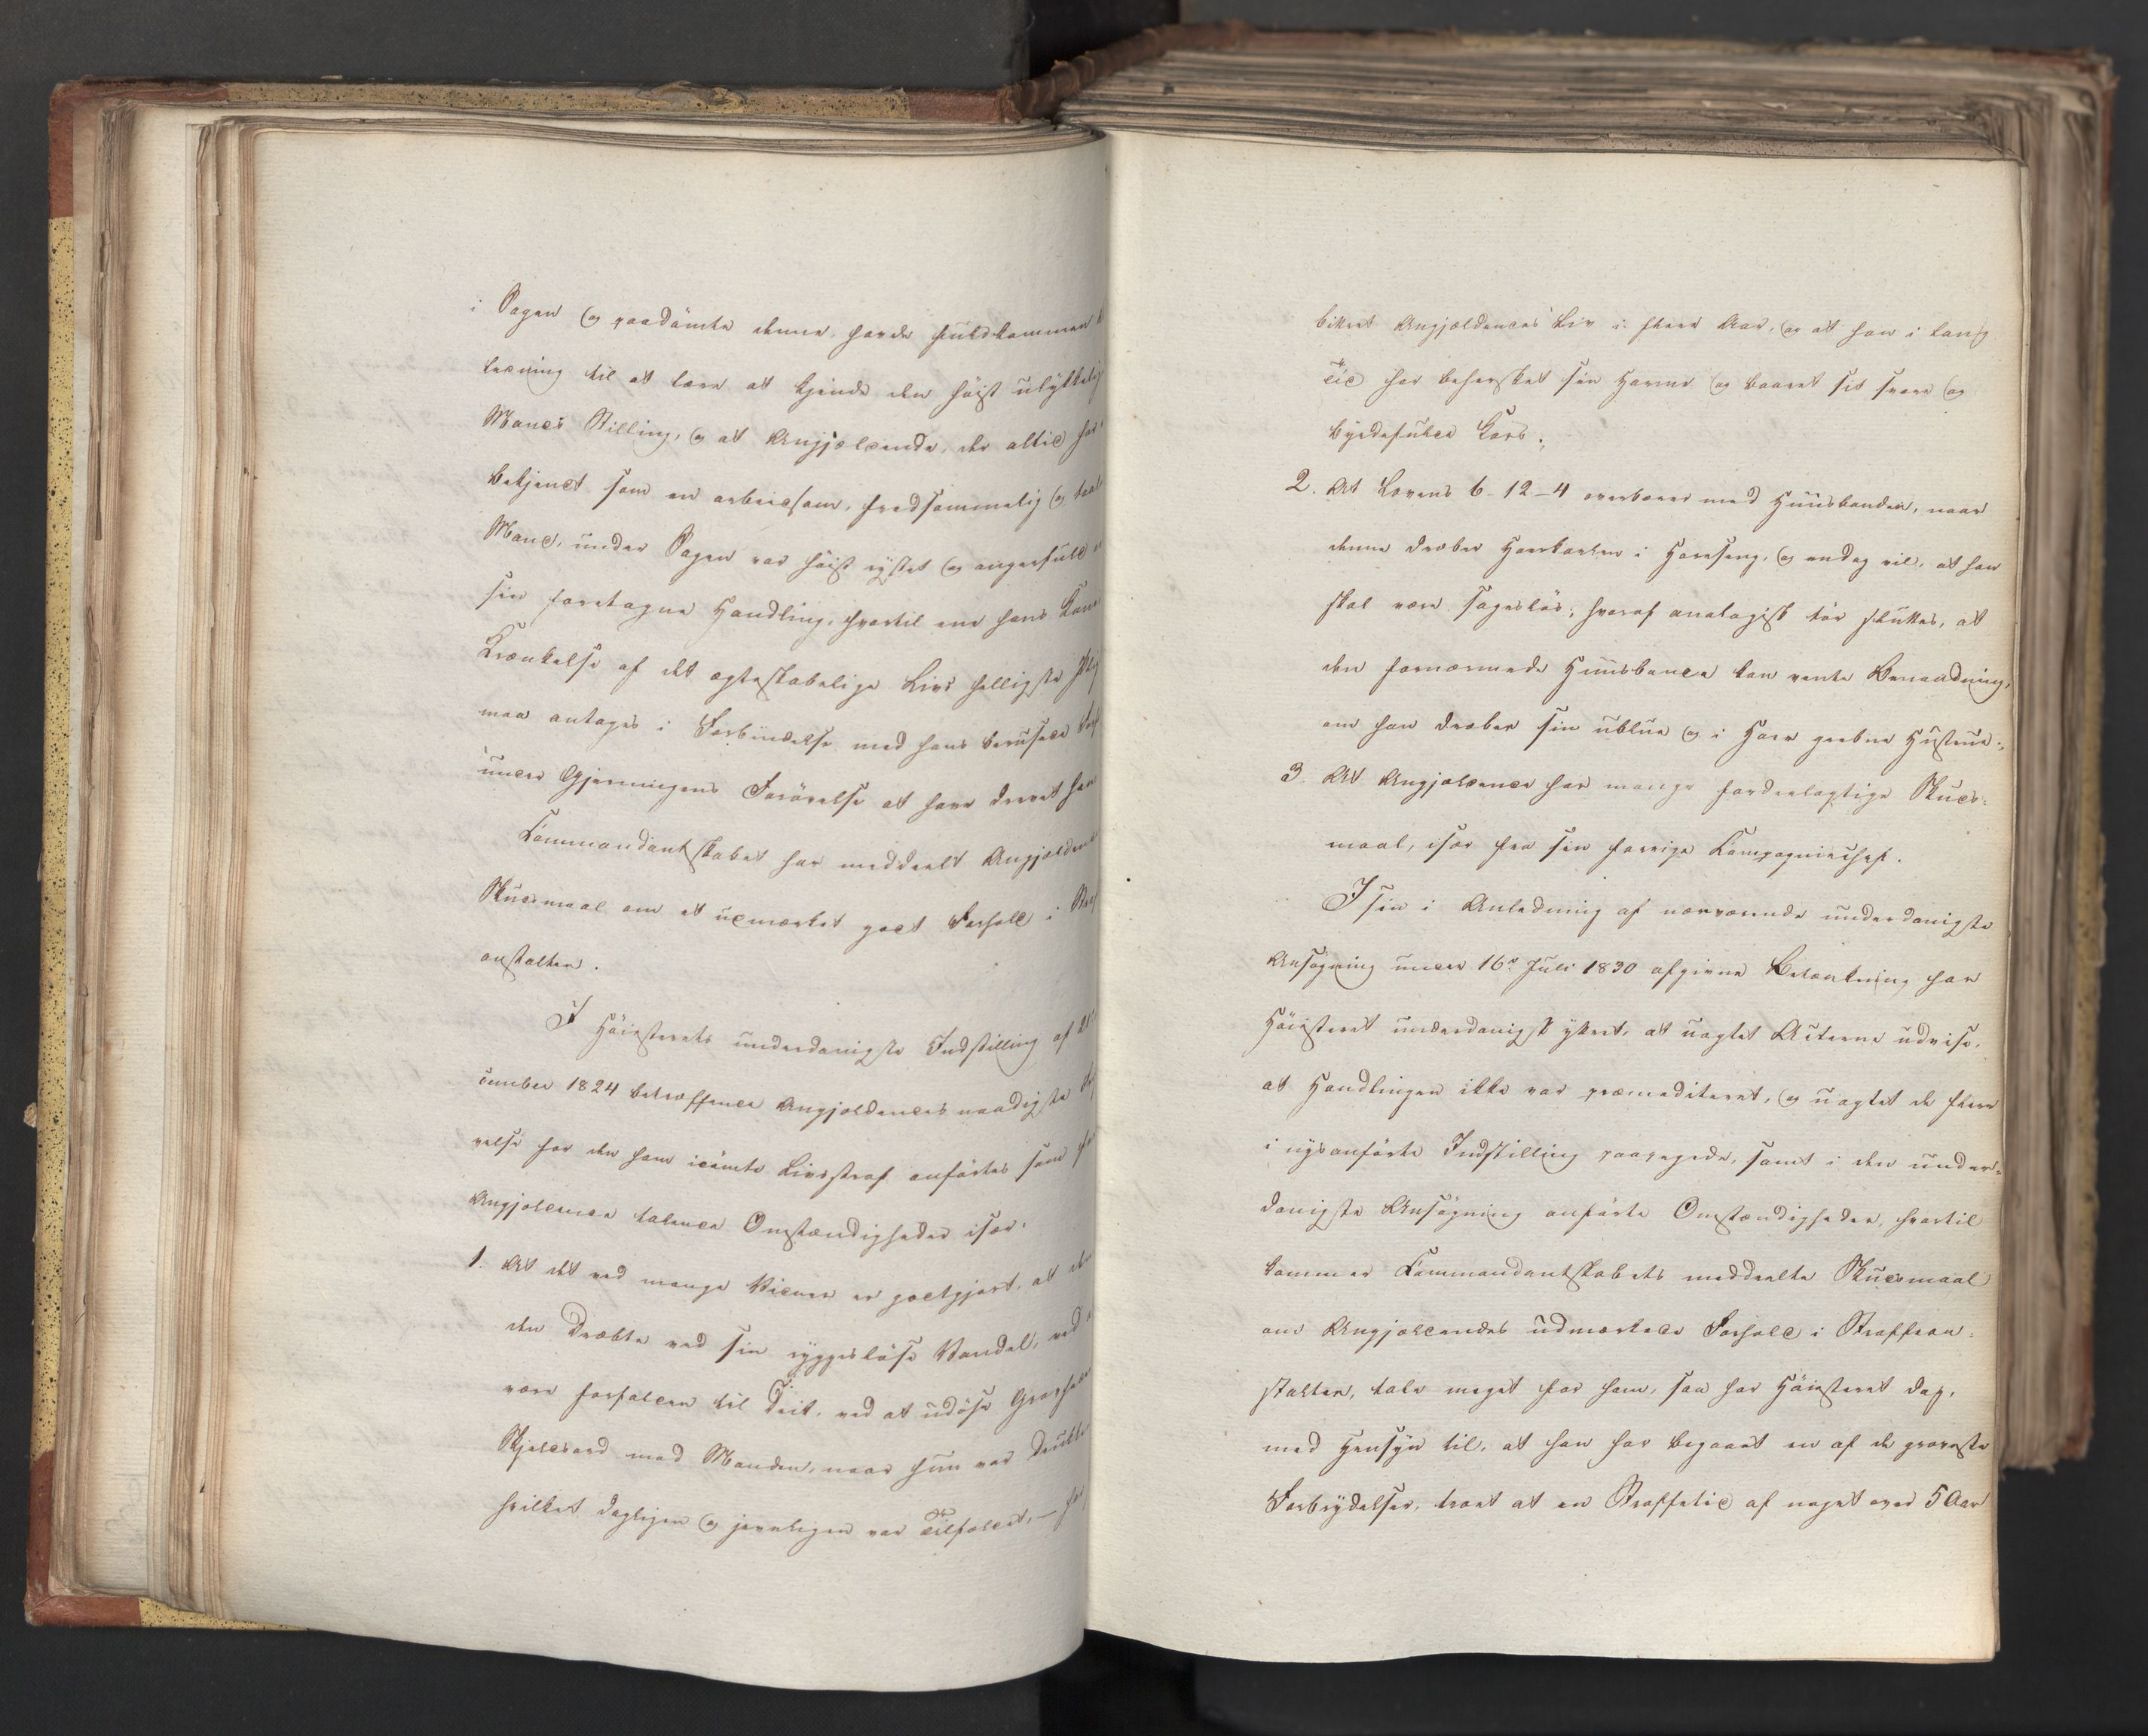 i Sagen og paadömte denne, havde fuldkommen
ledning til at lære at kjende den höist ulykkelig
Mands Stilling, og at Angjældende, der altid har
bekjendt som en arbeidsom, fredsommelig og
Mand, under Sagen var höist rystet og angerfuld
sin foretagne Handling, hvortil ene hans Kones
Krænkelse af det ægteskabelige Livs helligste
maa antages i Forbindelse med hans berusede
under Gjerningens Forövelse at have drevet ham
Commandantskabet har meddeelt Angjældende
Skudsmaal om et udmærket godt Forhold i
anstalten.
I Höiesterets underdanigste Indstilling af 21
cember 1824 betræffende Angjældendes naadigste
velse for den ham idömte Livsstraf anförtes som for
Angjældende talende Omstændigheder især:
1. At det ved mange Vidner er godtgjort, at
den Dræbte ved sin ryggeslöse Vandel, ved
være forfalden til Drik, ved at udöse Grovhed
Skjeldsord mod Manden, naar hun var drukken
hvilket dagligen og jevnligen var Tilfældet, – har
bittret Angjældendes Liv i flere Aar, og at han i lang
Tid har behersket sin Harme og baaret sit svære og
byrdefulde Kors;
2. At Lovens 6-12-4 overbærer med Huusbonden, naar
denne dræber Hoerkarlen i Horeseng, og endog vil, at han
skal være sageslös; hvoraf analogisk tör sluttes, at
den fornærmede Huusbonde kan vente Benaadning,
om han dræber sin ublue og i Hoer grebne Hustrue;
3. At Angjældende har mange fordeelagtige Skuds-
maal, især fra sin forrige Compagniechef.
I sin i Anledning af nærværende underdanigste
Ansögning under 16de Juli 1830 afgivne Betænkning har
Höiesteret underdanigst yttret, at uagtet Acterne udvise,
at Handlingen ikke var præmediteret, og uagtet de flere
i nysanförte Indstilling paapegede, samt i den under-
danigste Ansögning anförte Omstændigheder, hvortil
kommer Commandantskabets meddeelte Skudsmaal
om Angjældendes udmærkede Forhold i Straffean-
stalten, tale meget for ham, saa har Höiesteret dog,
med Hensyn til, at han har begaaet en af de groveste
Forbrydelser, troet at en Straffetid af noget over 5 Aar